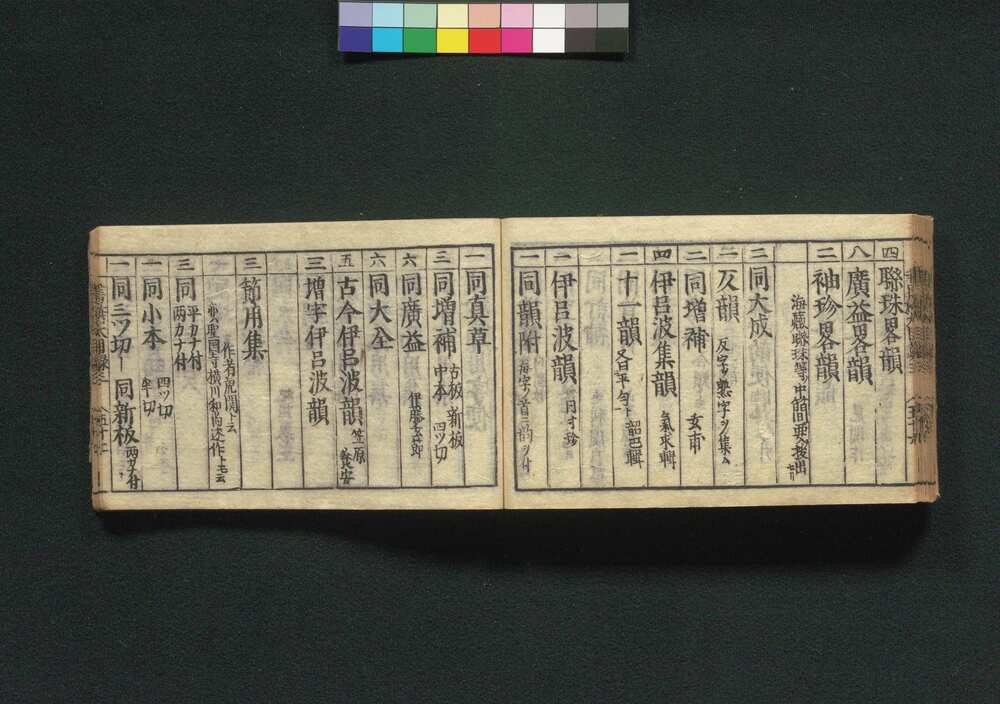 四 聯珠畧韻
八 廣益畧韻
二 袖珍畧韻
海蔵聯珠等ノ中簡要ヲ抜出
二 同大成
二 仄韻 反字ヲ懸字ヲ集ム
二 同増補 玄市
四 伊呂波集韻 氣求輯
二 十一韻 又曰平句ト 韶巴輯
一 伊呂波韻
一 同韻附 毎字ノ首ニ韵ヲ付
一 同真草
三 同増補 古板 新板 中本 四ツ切
六 同廣益
六 同大全
五 古今伊呂波韻 笠原養安
三 増字伊呂波韻
三 節用集
作者虎関ト云
東聖国寺横川和尚述作トモ云
三 同 平カナ付 両カナ付
一 同小本 四ツ切 半切
一 同三ツ切 一 同新板 両カナ付